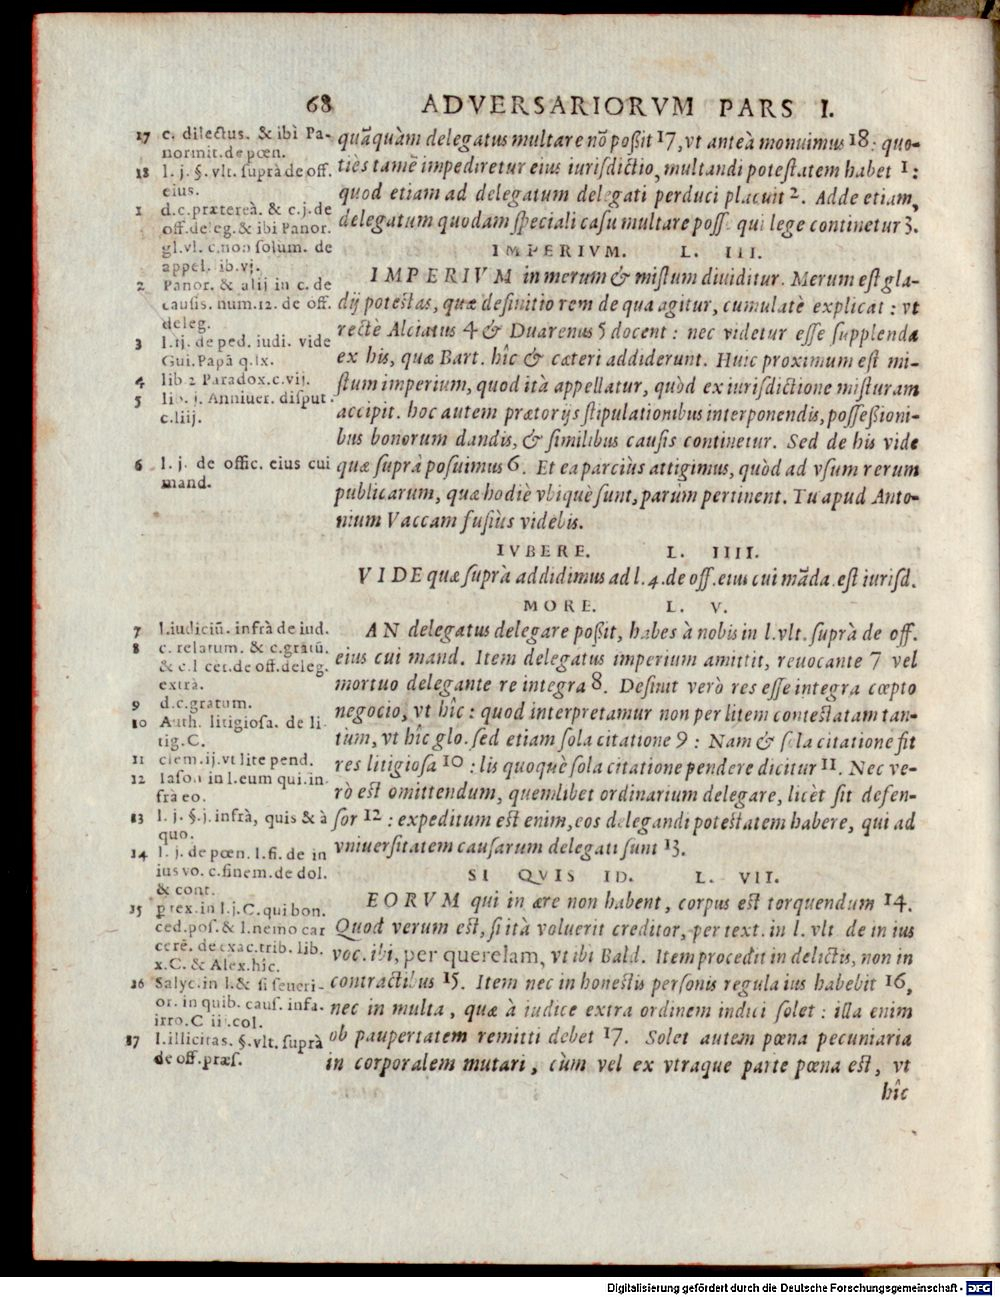 68 ADVERSARIORVM PARS I.
quāquàm delegatus multare nō poßit 17, vt anteà monuimus 18: quo-
tiès tamē impediretur eius iurisdictio, multandi potestatem habet 1:
quod etiam ad delegatum delegati perduci placuit 2. Adde etiam,
delegatum quodam speciali casu multare posse qui lege continetur 3.
IMPERIVM. L. III.
IMPERIVM in merum & mistum diuiditur. Merum est gla-
dij potestas, quæ definitio rem de qua agitur, cumulatè explicat: vt
rectè Alciatus 4 & Duarenus 5 docent: nec videtur esse supplenda
ex his, quæ Bart. hîc & cæteri addiderunt. Huic proximum est mi-
stum imperium, quod ità appellatur, quòd ex iurisdictione misturam
accipit. hoc autem prætorijs stipulationibus interponendis, possessioni-
bus bonorum dandis, & similibus causis continetur. Sed de his vide
quæ suprà posuimus 6. Et ea parciùs attigimus, quòd ad vsum rerum
publicarum, quæ hodiè vbiquè sunt, parùm pertinent. Tu apud Anto-
nium Vaccam fusiùs videbis.
IVBERE. L. IIII.
VIDE quæ suprà addidimus ad l.4.de off.eius cui māda.est iurisd.
MORE. L. V.
AN delegatus delegare poßit, habes à nobis in l.vlt. suprà de off.
eius cui mand. Item delegatus imperium amittit, reuocante 7 vel
mortuo delegante re integra 8. Desinit verò res esse integra cœpto
negocio, vt hîc: quod interpretamur non per litem contestatam tan-
tùm, vt hîc glo. sed etiam sola citatione 9: Nam & sola citatione fit
res litigiosa 10: lis quoquè sola citatione pendere dicitur 11. Nec ve-
rò est omittendum, quemlibet ordinarium delegare, licèt sit defen-
sor 12: expeditum est enim, eos delegandi potestatem habere, qui ad
vniuersitatem causarum delegati sunt 13.
SI QVIS ID. L. VII.
EORVM qui in ære non habent, corpus est torquendum 14.
Quod verum est, si ità voluerit creditor, per text. in l. vlt de in ius
voc. ibi, per querelam, vt ibi Bald. Item procedit in delictis, non in
contractibus 15. Item nec in honestis personis regula ius habebit 16,
nec in multa, quæ à iudice extra ordinem indici solet: illa enim
ob paupertatem remitti debet 17. Solet autem pœna pecuniaria
in corporalem mutari, cùm vel ex vtraque parte pœna est, vt
hîc
17 c. dilectus. & ibi Pa-
normit. de pœn.
18 l. j. §. vlt. suprà de off.
eius.
1 d.c.prætereà. & c.j.de
off.deleg.& ibi Panor.
gl.vl. c.non solum. de
appel. ib.vj.
2 Panor. & alij in c. de
causis. num.12. de off.
deleg.
3 l.ij. de ped. iudi. vide
Gui.Papā q.lx.
4 lib.2 Paradox.c.vij.
5 lib. j. Anniuer. disput.
c.liij.
6 l. j. de offic. eius cui
mand.
7 l.iudiciū. infrà de iud.
8 c. relatum. & c.gratū.
& c.l cet.de off.deleg.
extrà.
9 d.c.gratum.
10 Auth. litigiosa. de li-
tig.C.
11 clem.ij.vt lite pend.
12 Iason in l.eum qui.in-
frà eo.
13 l. j. §.j.infrà, quis & à
quo.
14 l. j. de pœn. l.fi. de in
ius vo. c.finem.de dol.
& cont.
15 p tex.in l.j.C.qui bon.
ced.pos.& l.nemo car
cerē. de exac.trib. lib.
x.C. & Alex.hîc.
16 Salyc.in l.& si seueri-
or. in quib. caus. infa.
irro.C iij.col.
17 l.illicitas. §.vlt.suprà
de off.præs.
Digitalisierung gefördert durch die Deutsche Forschungsgemeinschaft - DFG